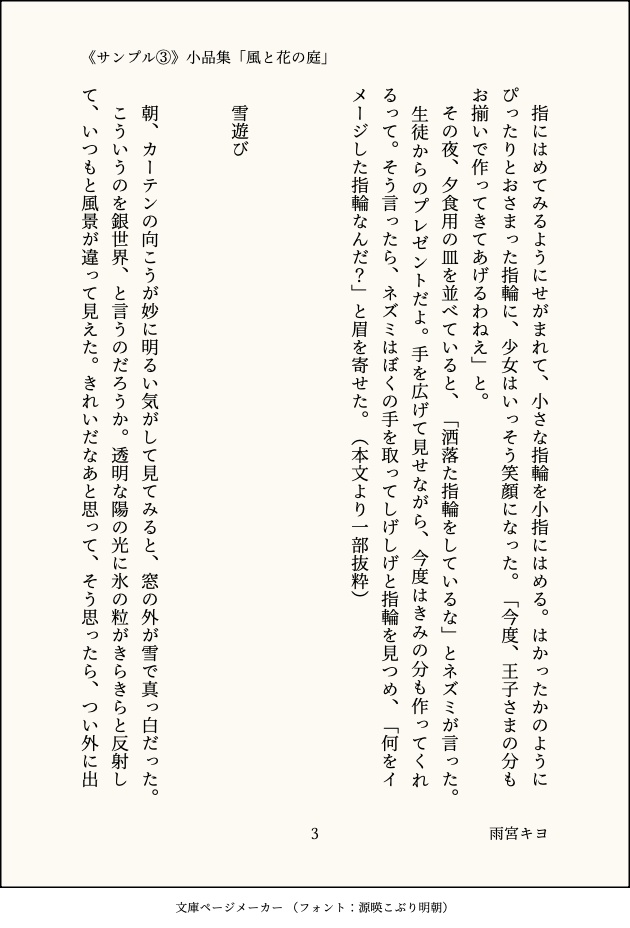 《サンプル③》小品集「風と花の庭」
指にはめてみるようにせがまれて、小さな指輪を小指にはめる。はかったかのように
ぴったりとおさまった指輪に、少女はいっそう笑顔になった。「今度、王子さまの分も
お揃いで作ってきてあげるわねえ」と。
その夜、夕食用の皿を並べていると、「洒落た指輪をしているな」とネズミが言った。
生徒からのプレゼントだよ。手を広げて見せながら、今度はきみの分も作ってくれ
るって。そう言ったら、ネズミはぼくの手を取ってしげしげと指輪を見つめ、「何をイ
メージした指輪なんだ？」と眉を寄せた。（本文より一部抜粋）
雪遊び
朝、カーテンの向こうが妙に明るい気がして見てみると、窓の外が雪で真っ白だった。
こういうのを銀世界、と言うのだろうか。透明な陽の光に氷の粒がきらきらと反射し
て、いつもと風景が違って見えた。きれいだなあと思って、そう思ったら、つい外に出
3
雨宮キヨ
文庫ページメーカー（フォント：源暎こぶり明朝）